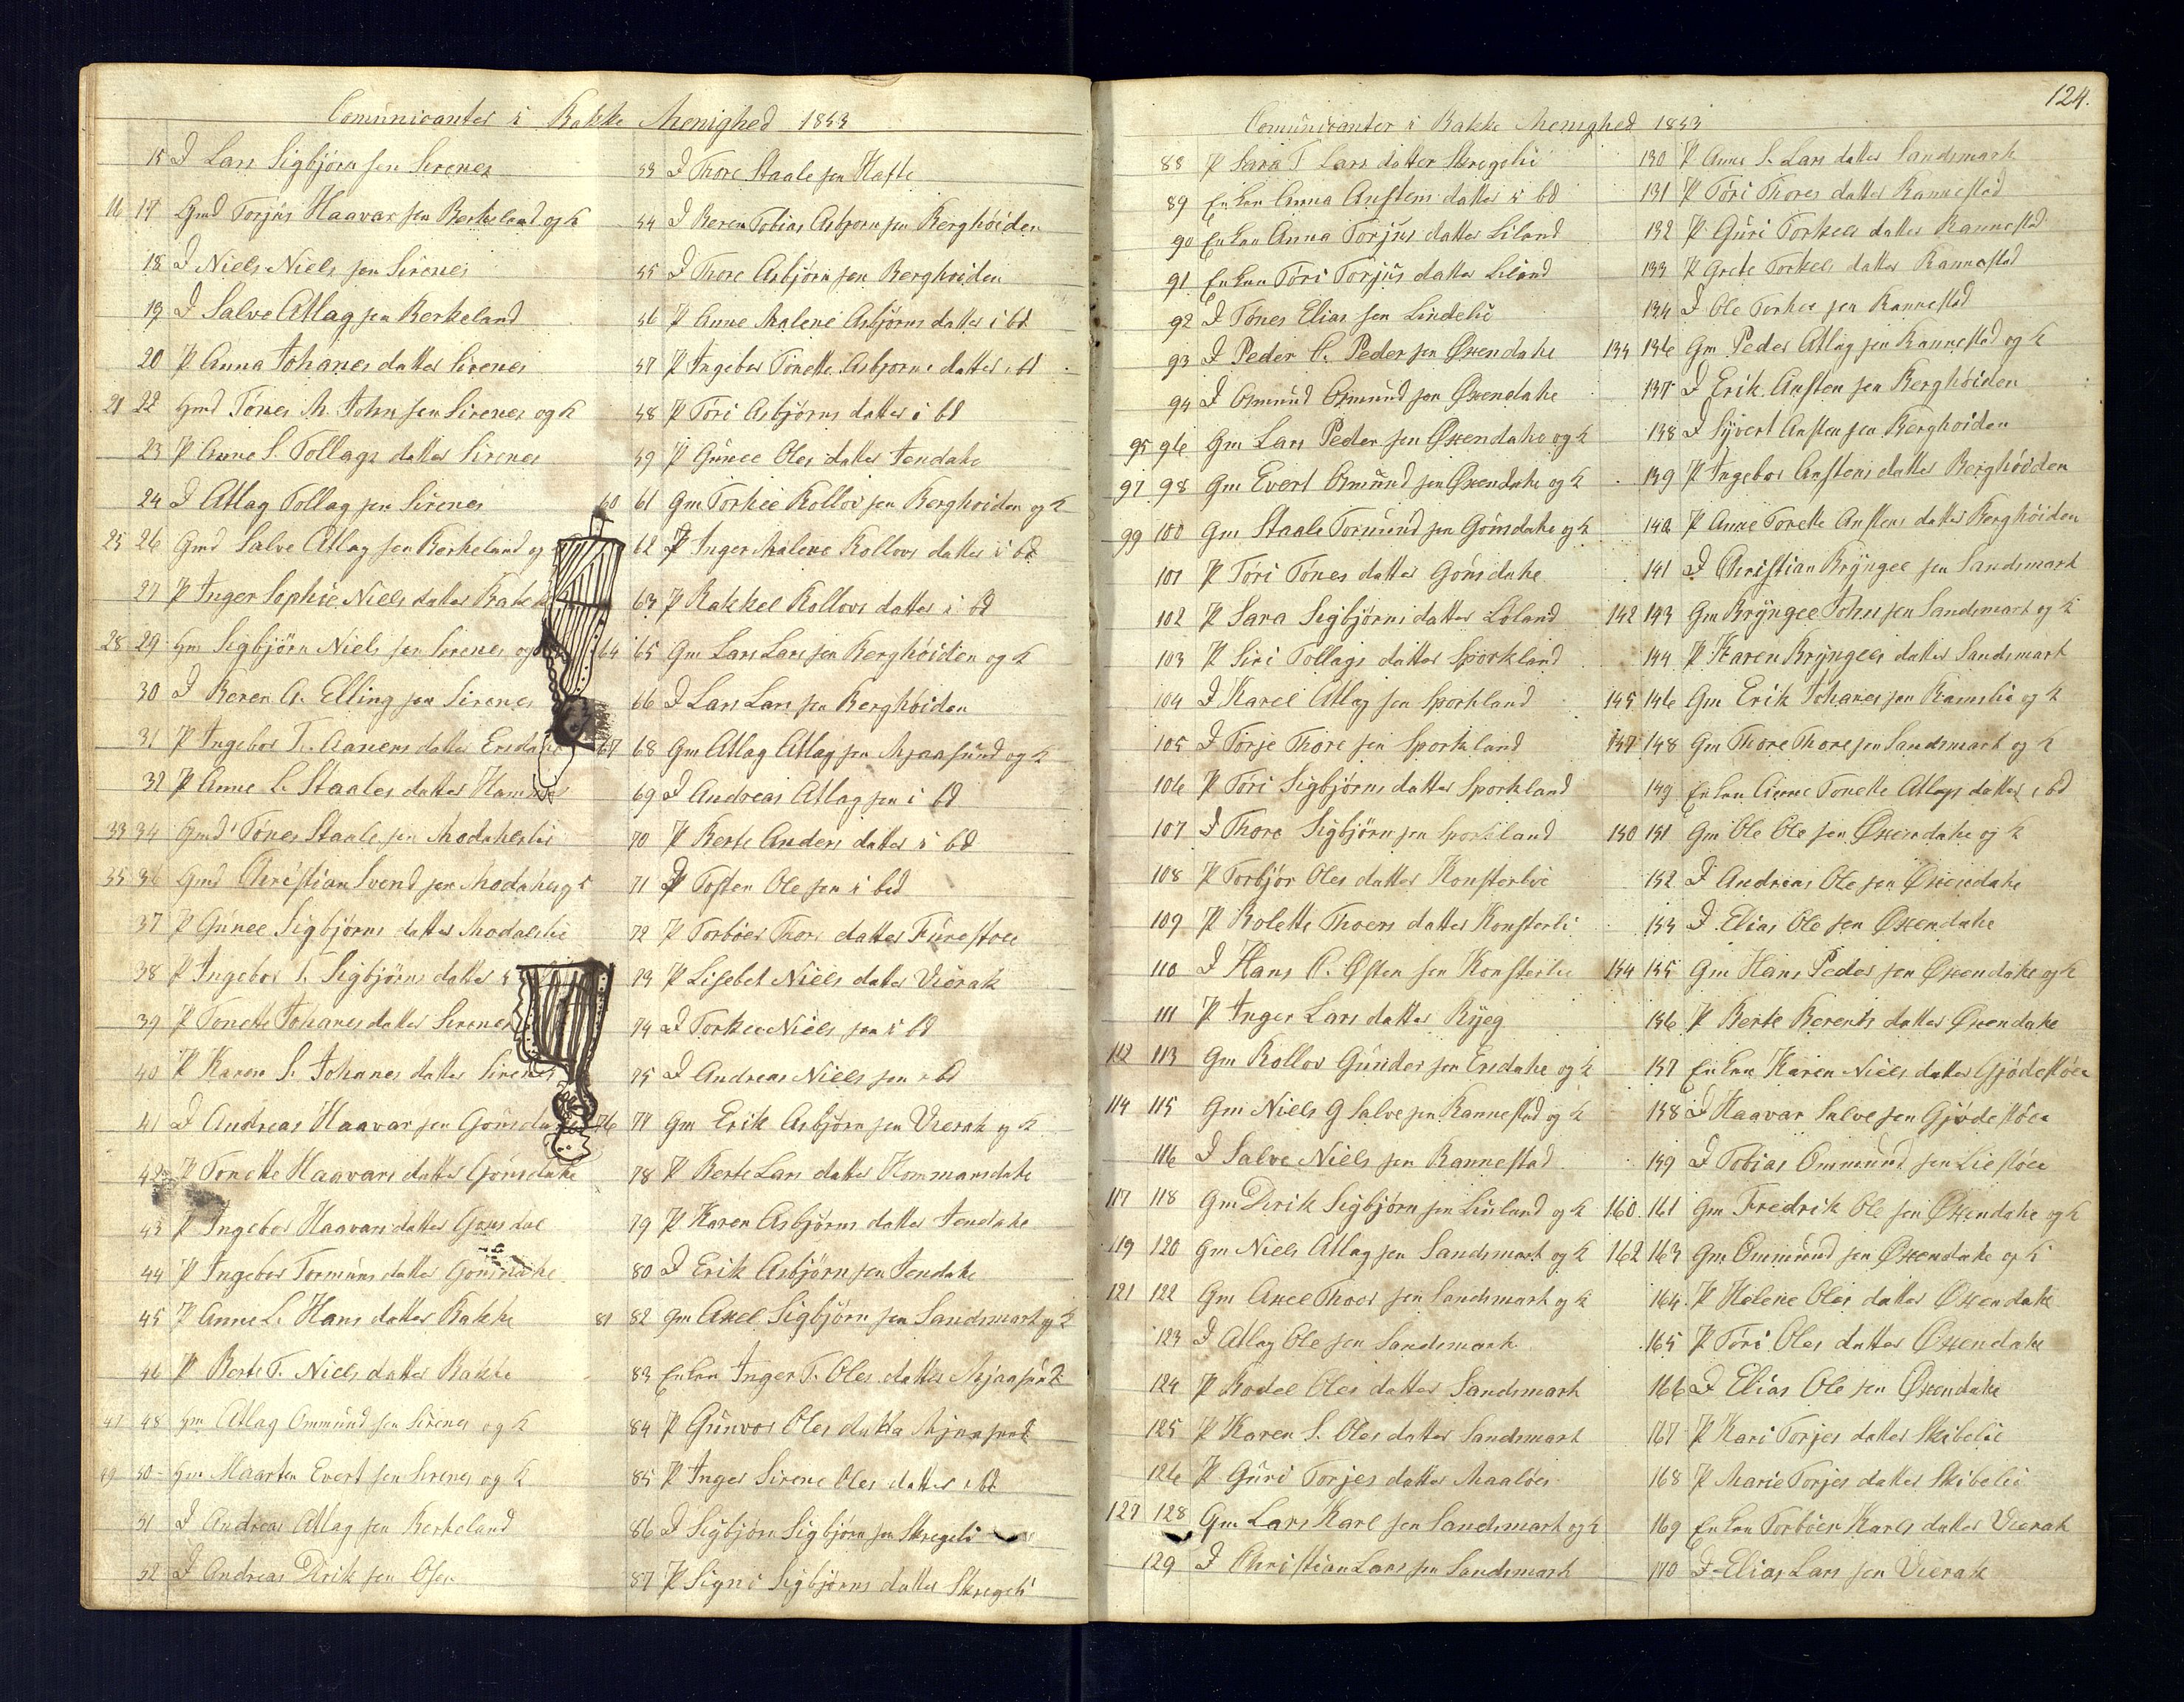 Comunicanter i Bakke Menighed 1853
15 D Lars Sigbjörn sen Sirenes
16 17 Gmd Torjus Haavar sen Berkeland og K
18 D Niels Niels sen Sirenes
19 D Salve Atlag sen Berkeland
20 P Anna Johanes datter Sirenes
21 22 Gmd Tönes M. John sen Sirenes og K
23 P Anne S. Tollags datter Sirenes
24 D Atlag Tollag sen Sirenes
25 26 Gmd Salve Atlag sen Berkeland og
27 P Inger Sophie Niels datter Bakke
28 29 Gm Sigbjörn Niels sen Sirenes og
30 D Beren A. Elling sen Sirenes
31 P Ingebor T. Aanens datter
32 P Anne L. Staales datter
33 34 Gmd Tönes Staale sen Modaleslie
35 36 Gmd Christian Svend sen
37 P Gunel Sigbjörns datter Modalslie
38 P Ingebor T. Sigbjörns datter
39 P Tonette Johanes datter Sirenes
40 P Karen S. Johanes datter Sirenes
41 D Andreas Haavar sen
42 P Tonette Haavars datter Gömsdahe
43 P Ingebor Haavars datter
44 P Ingebor Tormuns datter
45 P Anne L. Hans datter Bakke
46 P Berte T. Niels datter Bakke
47 48 Gm Atlag Ommund sen Sirenes og K
49 50 Gm Maarten Evert sen Sirenes og K
51 D Andreas Atlag sen Berkeland
52 D Andreas Dirik sen Osen
53 D Thore Staale sen Hafte
54 D Beren Tobias Asbjorn sen Berghöiden
55 D Thore Asbjörn sen Berghoiden
56 P Anne Malene Asbjörns datter i bd
57 P Ingebor Tonette Asbjorns datter i bd
58 P Töri Asbjörns datter i bd
59 P Gunel Oles datter Jendahe
60 61 Gm Torkel Rollov sen Berghoiden og K
62 P Inger Malene Rollovs datter i bd
63 P Rakkel Rollovs datter i bd
64 65 Gm Lars Lars sen Berghöiden og K
66 D Lars Lars sen Berghöiden
67 68 Gm Atlag Atlag sen Mjaasund og K
69 D Andreas Atlag sen i bd
70 P Berte Anders datter i bd
71 D Tosten Ole sen i bed
72 P Torböer Thors datter Furestöel
73 P Lisebet Niels datter Vierak
74 D Torkel Niels sen i bd
75 D Andreas Niels sen i bd
76 77 Gm Erik Asbjörn sen Vierak og K
78 P Berte Lars datter Kommansdahe
79 P Karen Asbjörns datter Jendahe
80 D Erik Asbjörn sen Jendahe
81 82 Gm Axel Sigbjörn sen Sandsmark og K
83 Enken Inger T. Oles datter Mjaasund
84 P Gunvor Oles datter Mjaasund
85 P Inger Sirene Oles datter i bd
86 D Sigbjörn Sigbjörn sen Skregelie
87 P Signi Sigbjörns datter Skregeli
124.
Comunicanter i Bakke Menighed 1853
88 P Sara T Lars datter Skregelie
89 Enken Anna Anstens datter i bd
90 Enken Anna Torjus datter Liland
91 Enken Töri Torjus datter Liland
92 D Tönes Elias sen Lindelie
93 D Peder C. Peder sen Øxendahe
94 D Osmund Osmund sen Øxendahe
95 96 Gm Lars Peder sen Øxendahe og K
97 98 Gm Evert Osmund sen Øxendahe og K
99 100 Gm Staale Tormund sen Gömsdahe og K
101 P Töri Tönes datter Gömsdahe
102 P Sara Sigbjörns datter Liland
103 P Siri Tollags datter Sporkland
104 D Karel Atlag sen Sporkland
105 D Torje Thore sen Sporkland
106 P Töri Sigbjörns datter Sporkland
107 D Thore Sigbjörn sen Sporkland
108 P Torbjör Oles datter Konsterlie
109 P Bolette Thoers datter Konsterli
110 D Hans P. Østen sen Konsterlie
111 P Inger Lars datter Ryeg
112 113 Gm Rollov Gunder sen Ersdahe og K
114 115 Gm Niels G Salve sen Rannestad og K
116 D Salve Niels sen Rannestad
117 118 Gm Dirik Sigbjörn sen Liland og K
119 120 Gm Niels Atlag sen Sandsmark og K
121 122 Gm Axel Thoer sen Sandsmark og K
123 D Atlag Ole sen Sandsmark
124 P Bodel Oles datter Sandsmark
125 P Karen S. Oles datter Sandsmark
126 P Guri Torjes datter Maalöes
127 128 Gm Lars Karl sen Sandsmark og K
129 D Christian Lars sen Sandsmark
130 P Anne S. Lars datter Sandsmark
131 P Töri Thores datter Rannestad
132 P Guri Torkels datter Rannestad
133 P Grete Torkels datter Rannestad
134 D Ole Torkel sen Rannestad
135 136 Gm Peder Atlag sen Rannestad og K
137 D Erik Ansten sen Berghöiden
138 D Syvert Ansten sen Berghoiden
139 P Ingebor Anstens datter Berghöiden
140 P Anne Tonette Anstens datter Berghöiden
141 D Christian Bryngel sen Sandsmark
142 143 Gm Bryngel Tohes sen Sandsmark og K
144 P Karen Bryngels datter Sandsmark
145 146 Gm Erik Johanes sen Ramslie og K
147 148 Gm Thore Thore sen Sandsmark og K
149 Enken Anne Tonette Atlags datter i bd
150 151 Gm Ole Ole sen Øxendahe og K
152 D Andreas Ole sen Øxendahe
153 D Elias Ole sen Øxendahe
154 155 Gm Hans Peder sen Øxendahe og K
156 P Berte Berents datter Øxendahe
157 Enken Karen Niels datter Gjödestöel
158 D Haavar Salve sen Gjödestöel
159 D Tobias Ommund sen Liestöel
160 161 Gm Fredrik Ole sen Øxendahe og K
162 163 Gm Ommund sen Øxendahe og K
164 P Helene Oles datter Øxendahe
165 P Töri Oles datter Øxendahe
166 D Elias Ole sen Øxendahe
167 P Kari Torjes datter Skibelie
168 P Marie Torjes datter Skibelie
169 Enken Torböer Karls datter Vierak
170 D Elias Lars sen Vierak